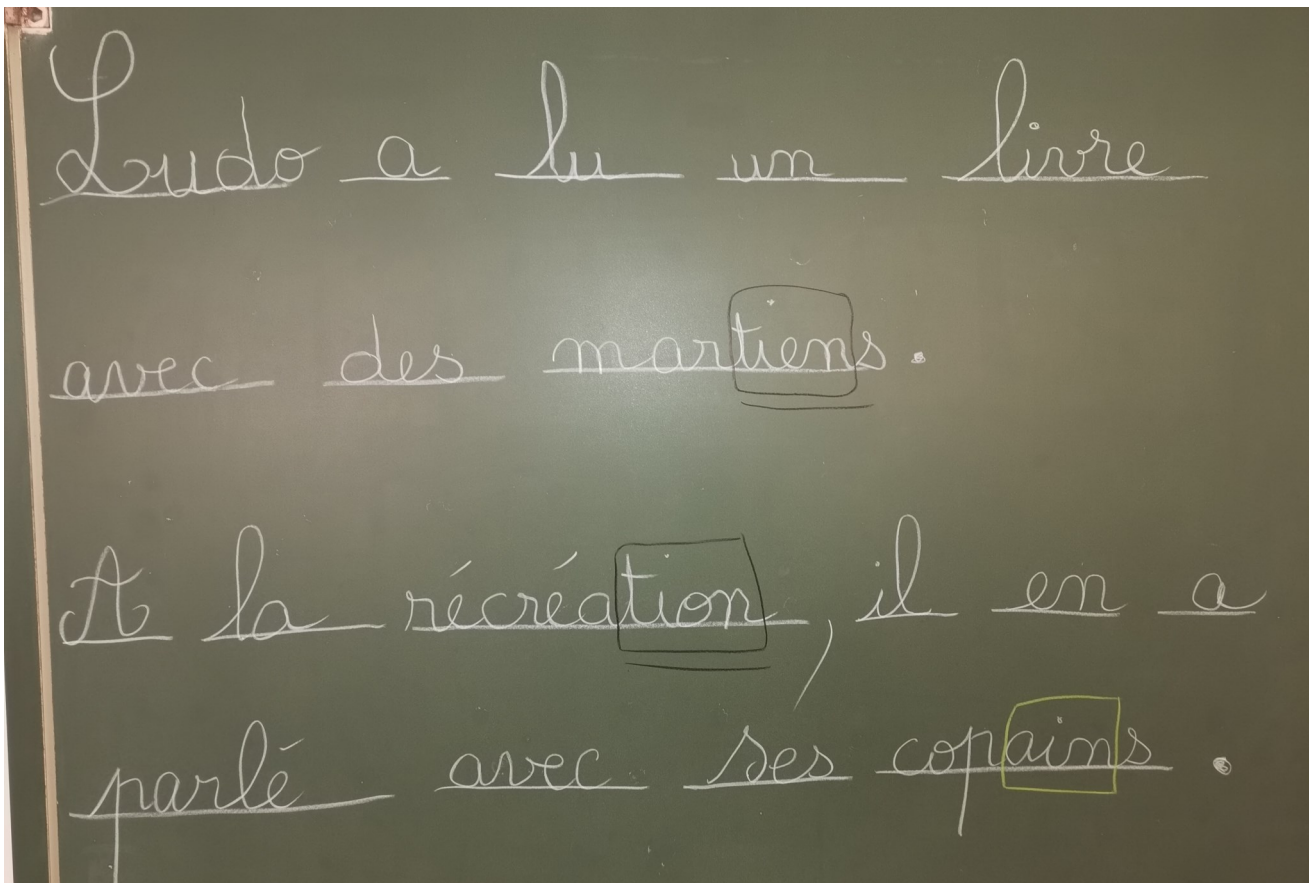 Ludo a lu un livre
avec des martiens.
A la récréation, il en a
parlé avec ses copains.